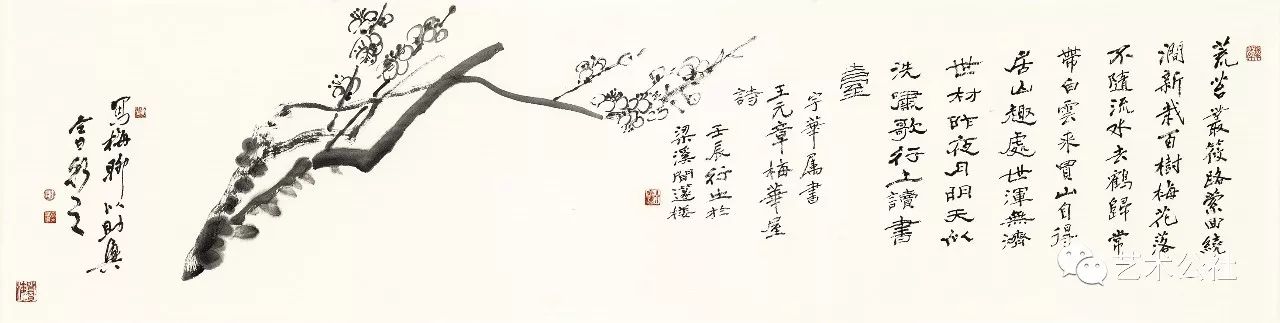 荒苔叢篠路縈回繞
澗新栽百樹梅花落
不隨流水去鶴歸常
帶白雲來買山自得
居山趣處世渾無濟
世材昨夜月明天似
洗嘯歌行上讀書
臺
宇華屬書
王元章梅華屋
詩
壬辰行之於
梁溪
寫梅聊以助興
艺术公社